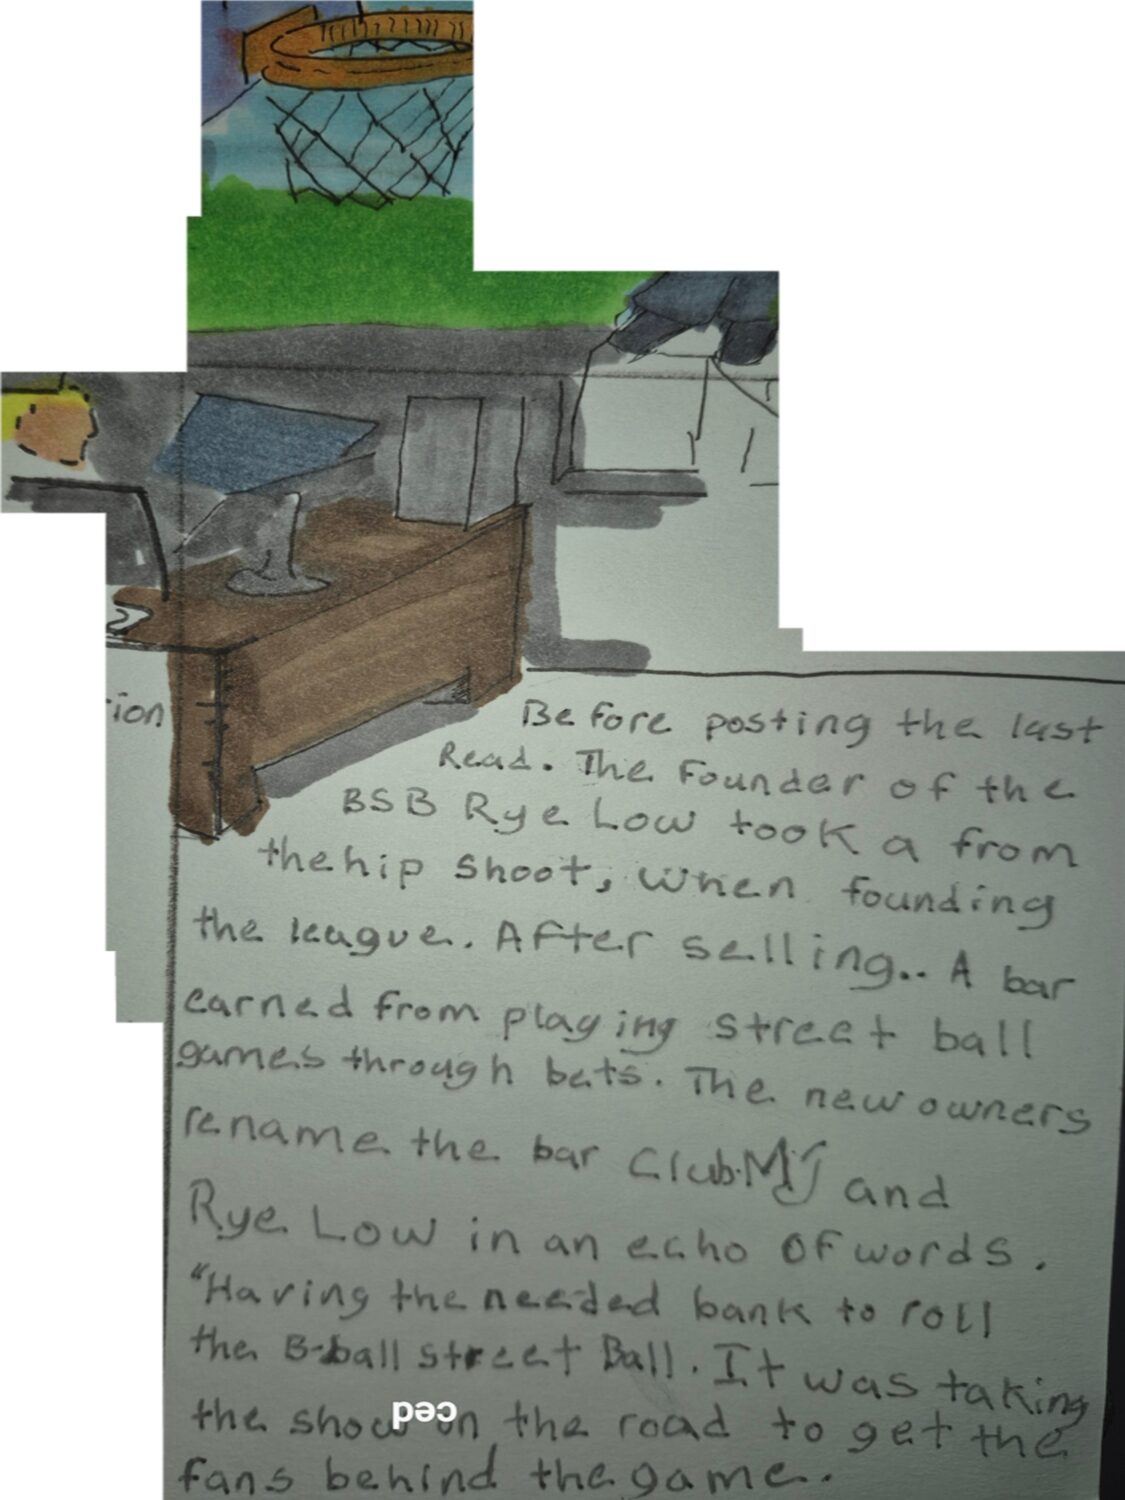 ion
Before posting the last
Read. The Founder of the
BSB Rye Low took a from
the hip shoot, when founding
the league. After selling.. A bar
earned from playing street ball
games through bets. The new owners
rename the bar Club.MJ and
Rye Low in an echo of words.
"Having the needed bank to roll
the B-ball street Ball. It was taking
the show on the road to get the
ced
fans behind the game.